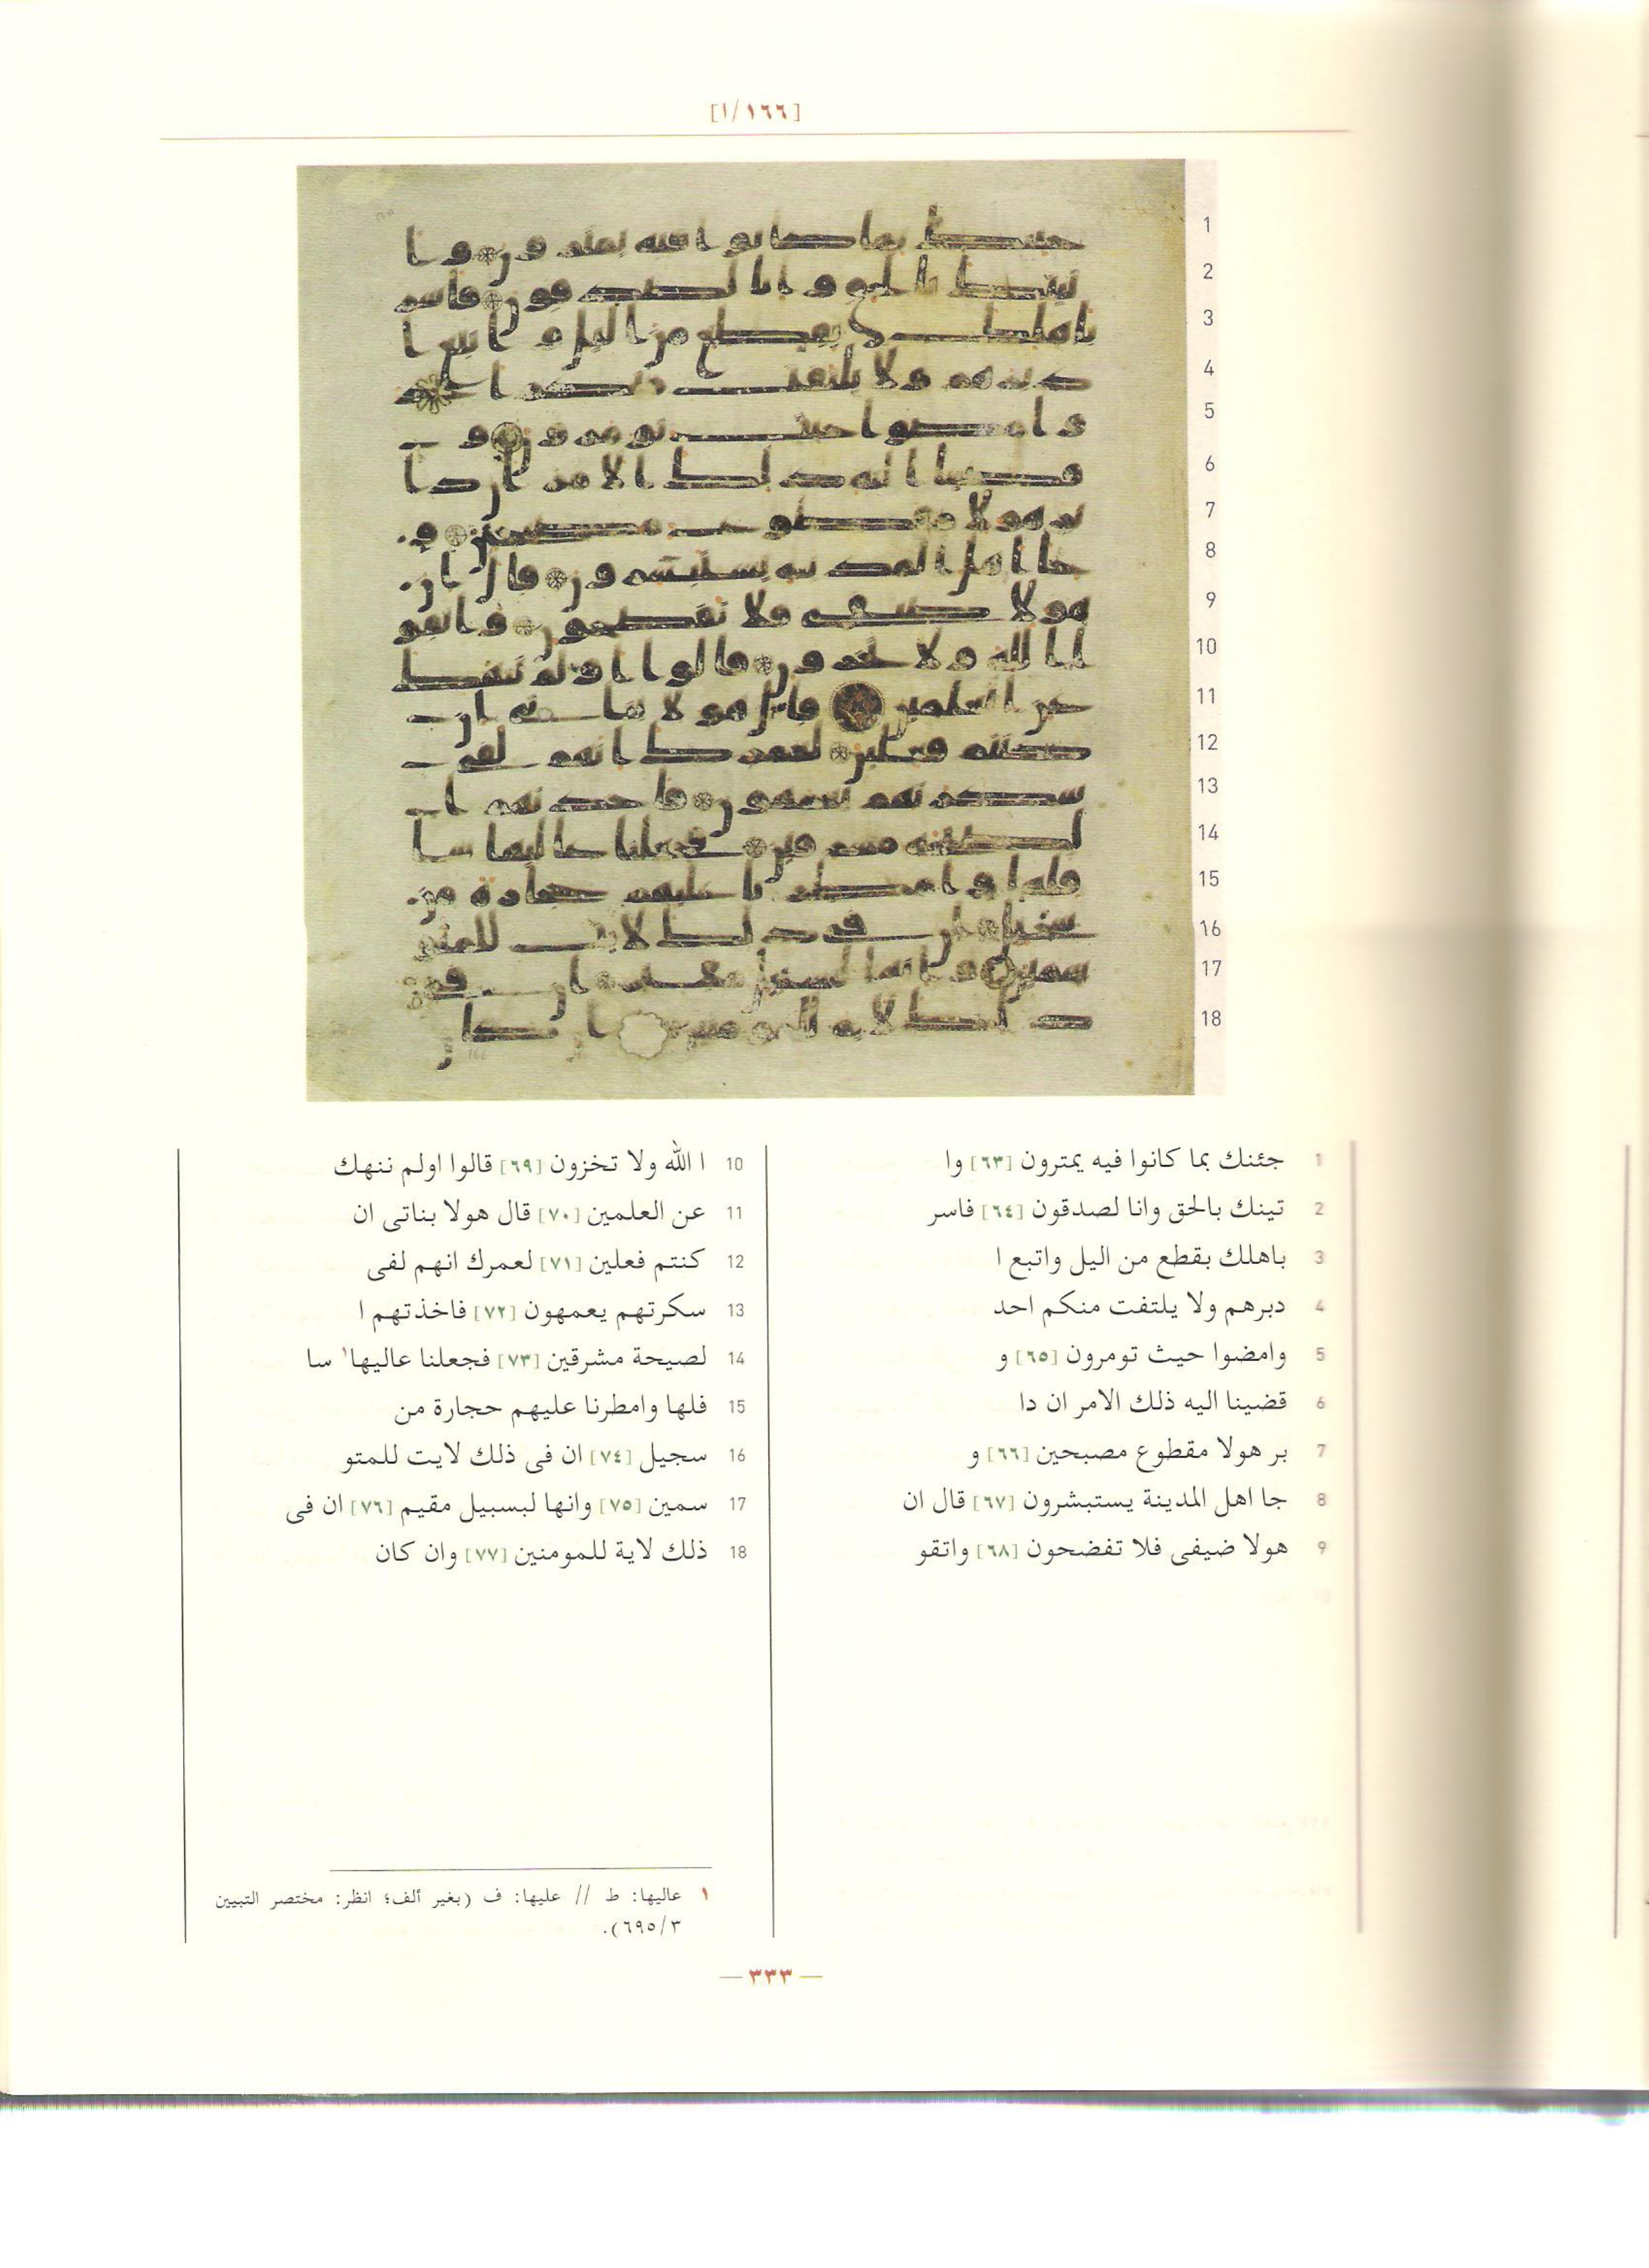 [١٦٦/ا]
1 جئنك بما كانوا فيه يمترون [٦٣] وا
2 تينك بالحق وانا لصدقون [٦٤] فاسر
3 باهلك بقطع من اليل واتبع ا
4 دبرهم ولا يلتفت منكم احد
5 وامضوا حيث تومرون [٦٥] و
6 قضينا اليه ذلك الامر ان دا
7 بر هولا مقطوع مصبحين [٦٦] و
8 جا اهل المدينة يستبشرون [٦٧] قال ان
9 هولا ضيفى فلا تفضحون [٦٨] واتقو
10 ا الله ولا تخزون [٦٩] قالوا اولم ننهك
11 عن العلمين [٧٠] قال هولا بناتى ان
12 كنتم فعلين [٧١] لعمرك انهم لفى
13 سكرتهم يعمهون [٧٢] فاخذتهم ا
14 لصيحة مشرقين [٧٣] فجعلنا عاليها١ سا
15 فلها وامطرنا عليهم حجارة من
16 سجيل [٧٤] ان فى ذلك لايت للمتو
17 سمين [٧٥] وانها لبسبيل مقيم [٧٦] ان فى
18 ذلك لاية للمومنين [٧٧] وان كان
١ عاليها: ط // عليها: ف (بغير ألف؛ انظر: مختصر التبيين
٦٩٥/٣).
— ٣٣٣ —